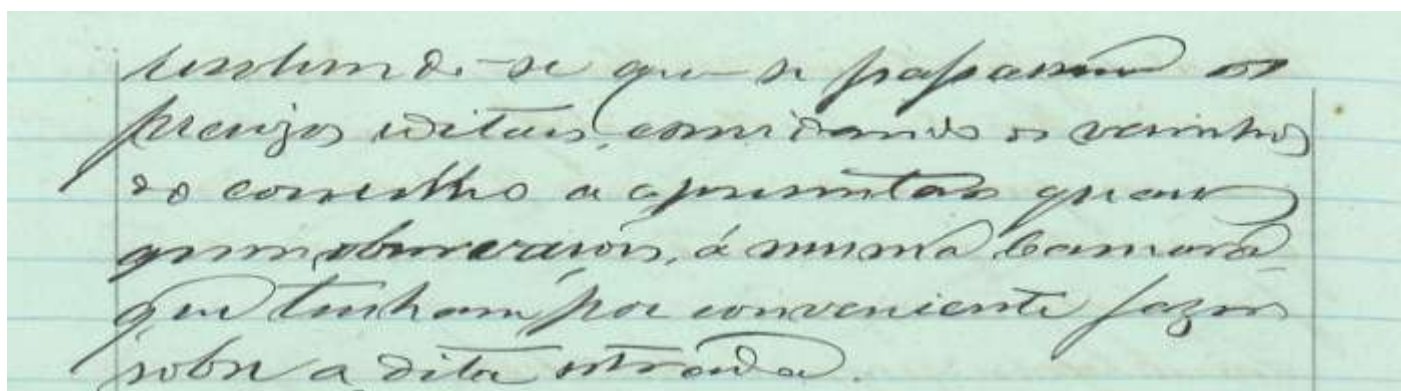 se que se passassem os
precizos editaes, convidando os vesinhos
do concelho a apresentar quaes
quer observacões, á mesma Camara
que tenham por conveniente fazer
sobre a dita estrada.